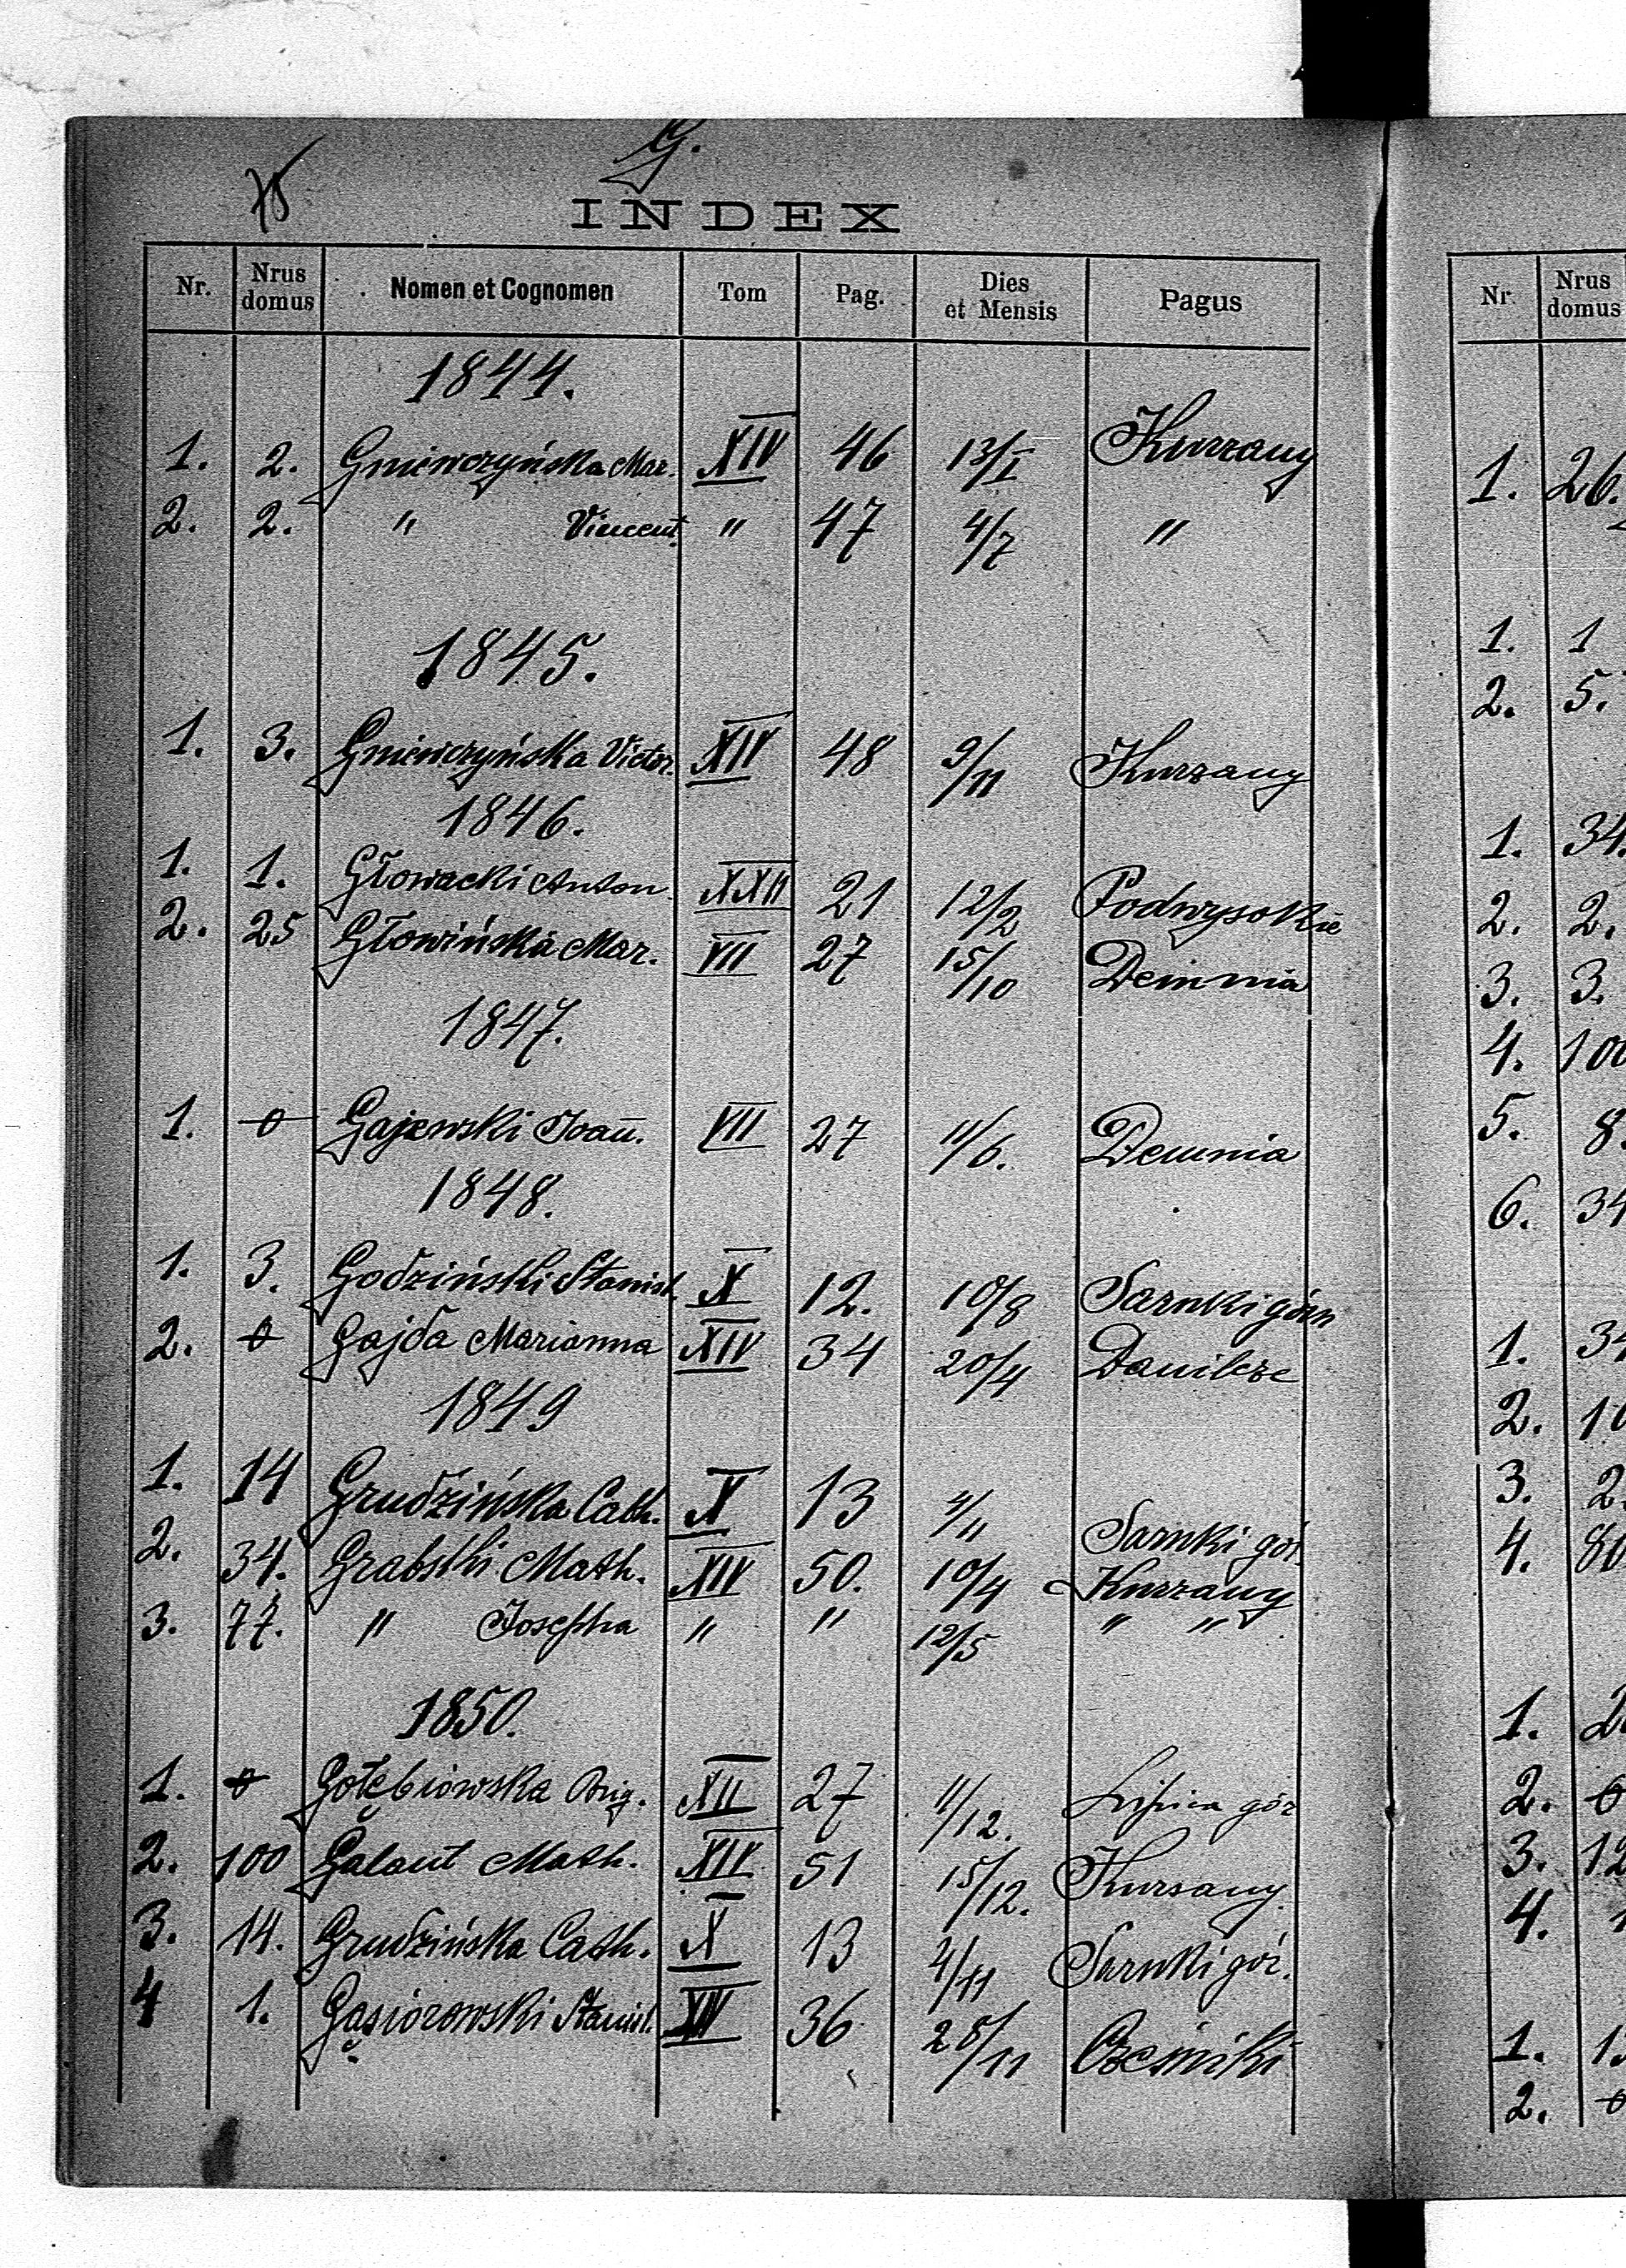 G.
75
INDEX
Nr. Nrus domus Nomen et Cognomen Tom Pag. Dies et Mensis Pagus
1844.
1. 2. Gniewczyńska Mar. XIV 46 13/I Kurzany
2. 2. " Vincent. " 47 4/7 "
1845.
1. 3. Gniewczyńska Victor. XIV 48 9/11 Kurzany
1846.
1. 1. Głowacki Anton XXII 21 12/2 Podwysokie
2. 25 Głowińska Mar. VII 27 15/10 Demnia
1847.
1. 0 Gajewski Joan̄. VII 27 11/6. Demnia
1848.
1. 3. Godziński Stanisł. X 12. 10/8 Sarnki górn
2. 0 Gajda Marianna XIV 34 20/4 Danilcze
1849
1. 14 Grudzińska Cath. X 13 4/11 Sarnki gór.
2. 34. Grabski Math. XIV 50. 10/4 Kurzany
3. 77. " Josepha " " 12/5 " "
1850.
1. 0 Gołębiowska Brig. XII 27 11/12. Lipica gór
2. 100 Galant Math. XIV 51 15/12. Kurzany.
3. 14. Grudzińska Cath. X 13 4/11 Sarnki gór.
4 1. Gąsiorowski Stanisł. 36 25/11 Cześniki
Nr. Nrus domus
1. 26.
1. 1
2. 5.
1. 34.
2. 2.
3. 3.
4. 100
5. 8.
6. 34
1. 34
2. 10
3. 2
4. 80
1. 2
2. 0
3. 12
4. 1
1. 1
2. 0